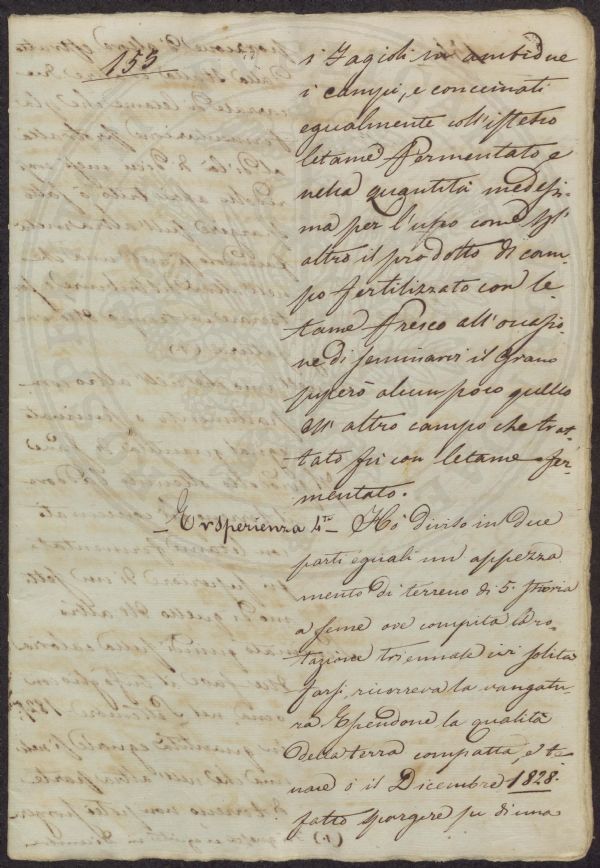 153
i Fagioli in ambidue
i campi, e concimati
egualmente coll'istesso
letame fermentato e
nella quantità medesi-
ma per l'uno come p l'
altro il prodotto di cam-
po fertilizzato con le-
tame fresco all'occasio-
ne di seminarvi il Grano
superò alcun poco quello
dll' altro campo che trat-
tato fù con letame fer-
mentato.
Esperienza 4.ta Hò diviso in due
parti eguali un appezza
mento di terreno di 5. staia
a seme ove compita la ro-
tazione triennale ivi solita
farsi, ricorreva la vangatu-
ra Essendone la qualità
della terra compatta, e te-
nace ò il Dicembre 1828.
fatto spargere su di una
(1)